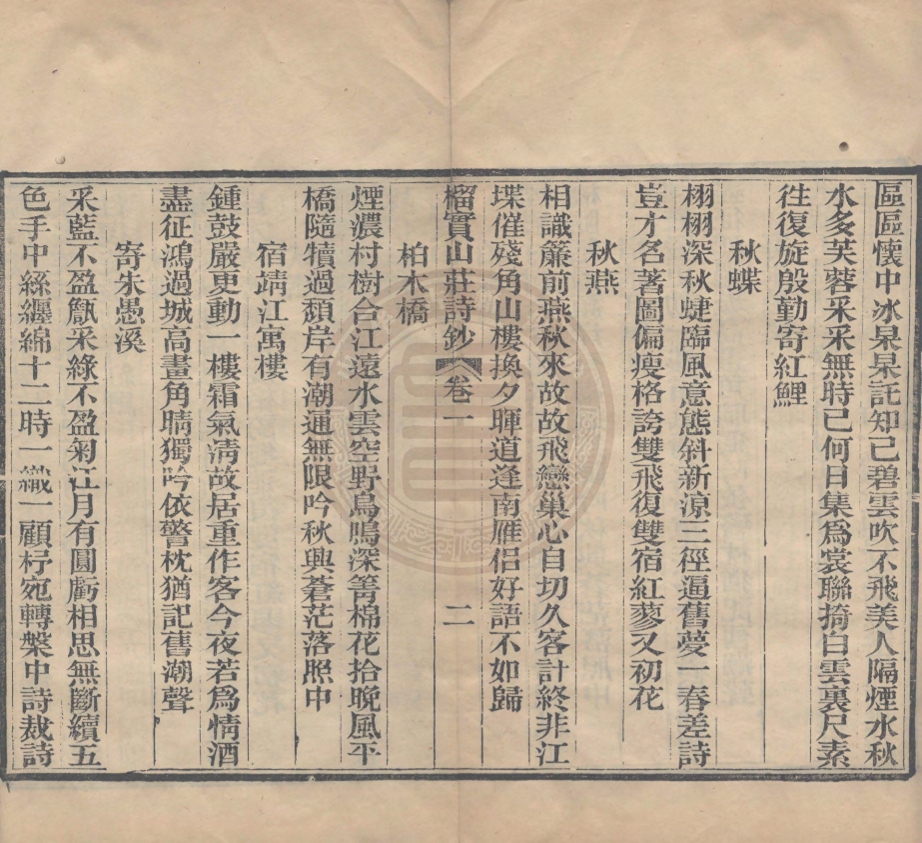 區區懷中冰杲杲託知己碧雲吹不飛美人隔煙水秋
水多芙蓉采采無時已何日集爲裳聯掎白雲裏尺素
往復旋殷勤寄紅鯉
秋蝶
栩栩深秋蜨臨風意態斜新涼三徑逼舊夢一春差詩
豈才名著圖偏瘦格誇雙飛復雙宿紅蓼又初花
秋燕
相識簾前燕秋來故故飛戀巢心自切久客計終非江
堞催殘角山樓換夕暉道逢南雁侶好語不如歸
榴實山莊詩鈔 卷一 二
柏木橋
煙濃村樹合江遠水雲空野鳥鳴深箐棉花拾晚風平
橋隨犢過頹岸有潮通無限吟秋興蒼茫落照中
宿靖江寓樓
鍾鼓嚴更動一樓霜氣淸故居重作客今夜若爲情酒
盡征鴻過城高畫角晴獨吟依警枕猶記舊潮聲
寄朱愚溪
采藍不盈甔采綠不盈匊江月有圓虧相思無斷續五
色手中絲纏綿十二時一織一顧杼宛轉槃中詩裁詩